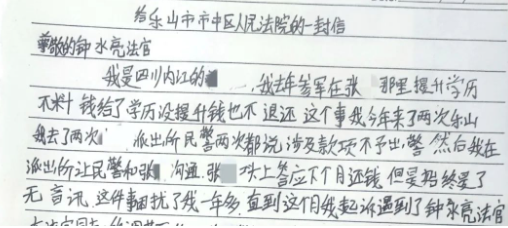 给乐山市市中区人民法院的一封信
尊敬的钟永亮法官
我是四川内江的 ,我去年参军在张 那里提升学历
不料钱给了学历没提升钱也不退还 这个事我今年来了两次乐山
我去了两次 派出所民警两次都说涉及款项不予出警 然后我在
派出所让民警和张 沟通.张 口头上答应下个月还钱 但是始终是了
无音讯,这件事困扰了我一年多,直到这个月我起诉遇到了钟永亮法官